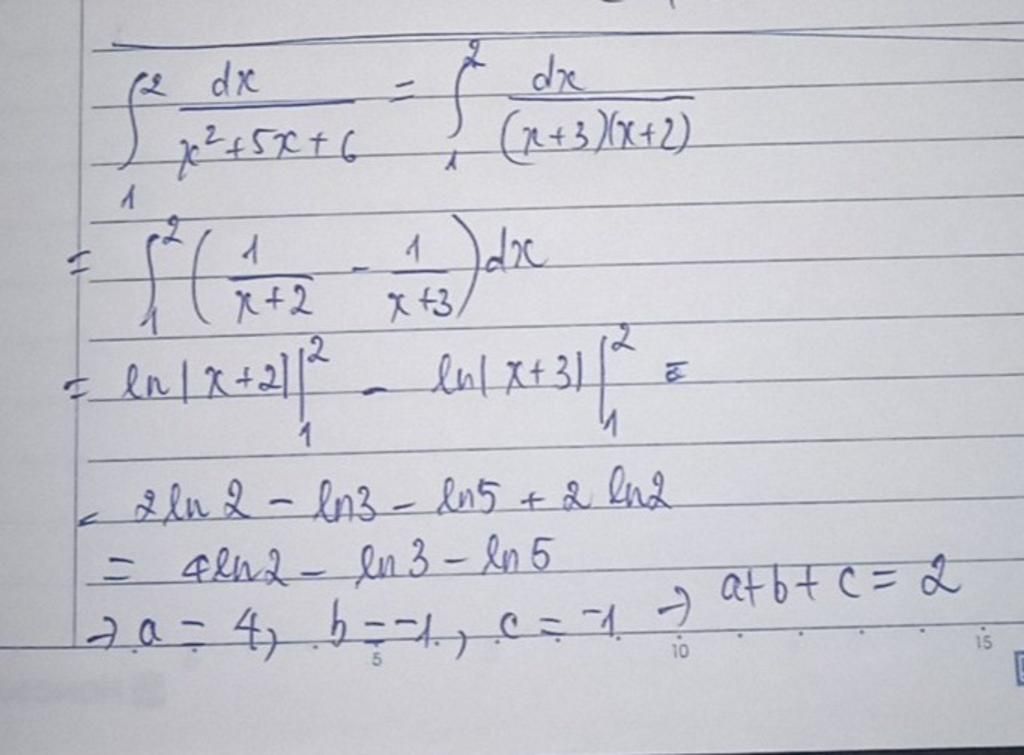 ∫₁² dx/(x²+5x+6) = ∫₁² dx/((x+3)(x+2))
= ∫₁² (1/(x+2) - 1/(x+3)) dx
= ln|x+2| |₁² - ln|x+3| |₁² =
= 2ln2 - ln3 - ln5 + 2 ln2
= 4ln2 - ln3 - ln5
→ a = 4, b = -1, c = -1 → a+b+c = 2
5 10 15